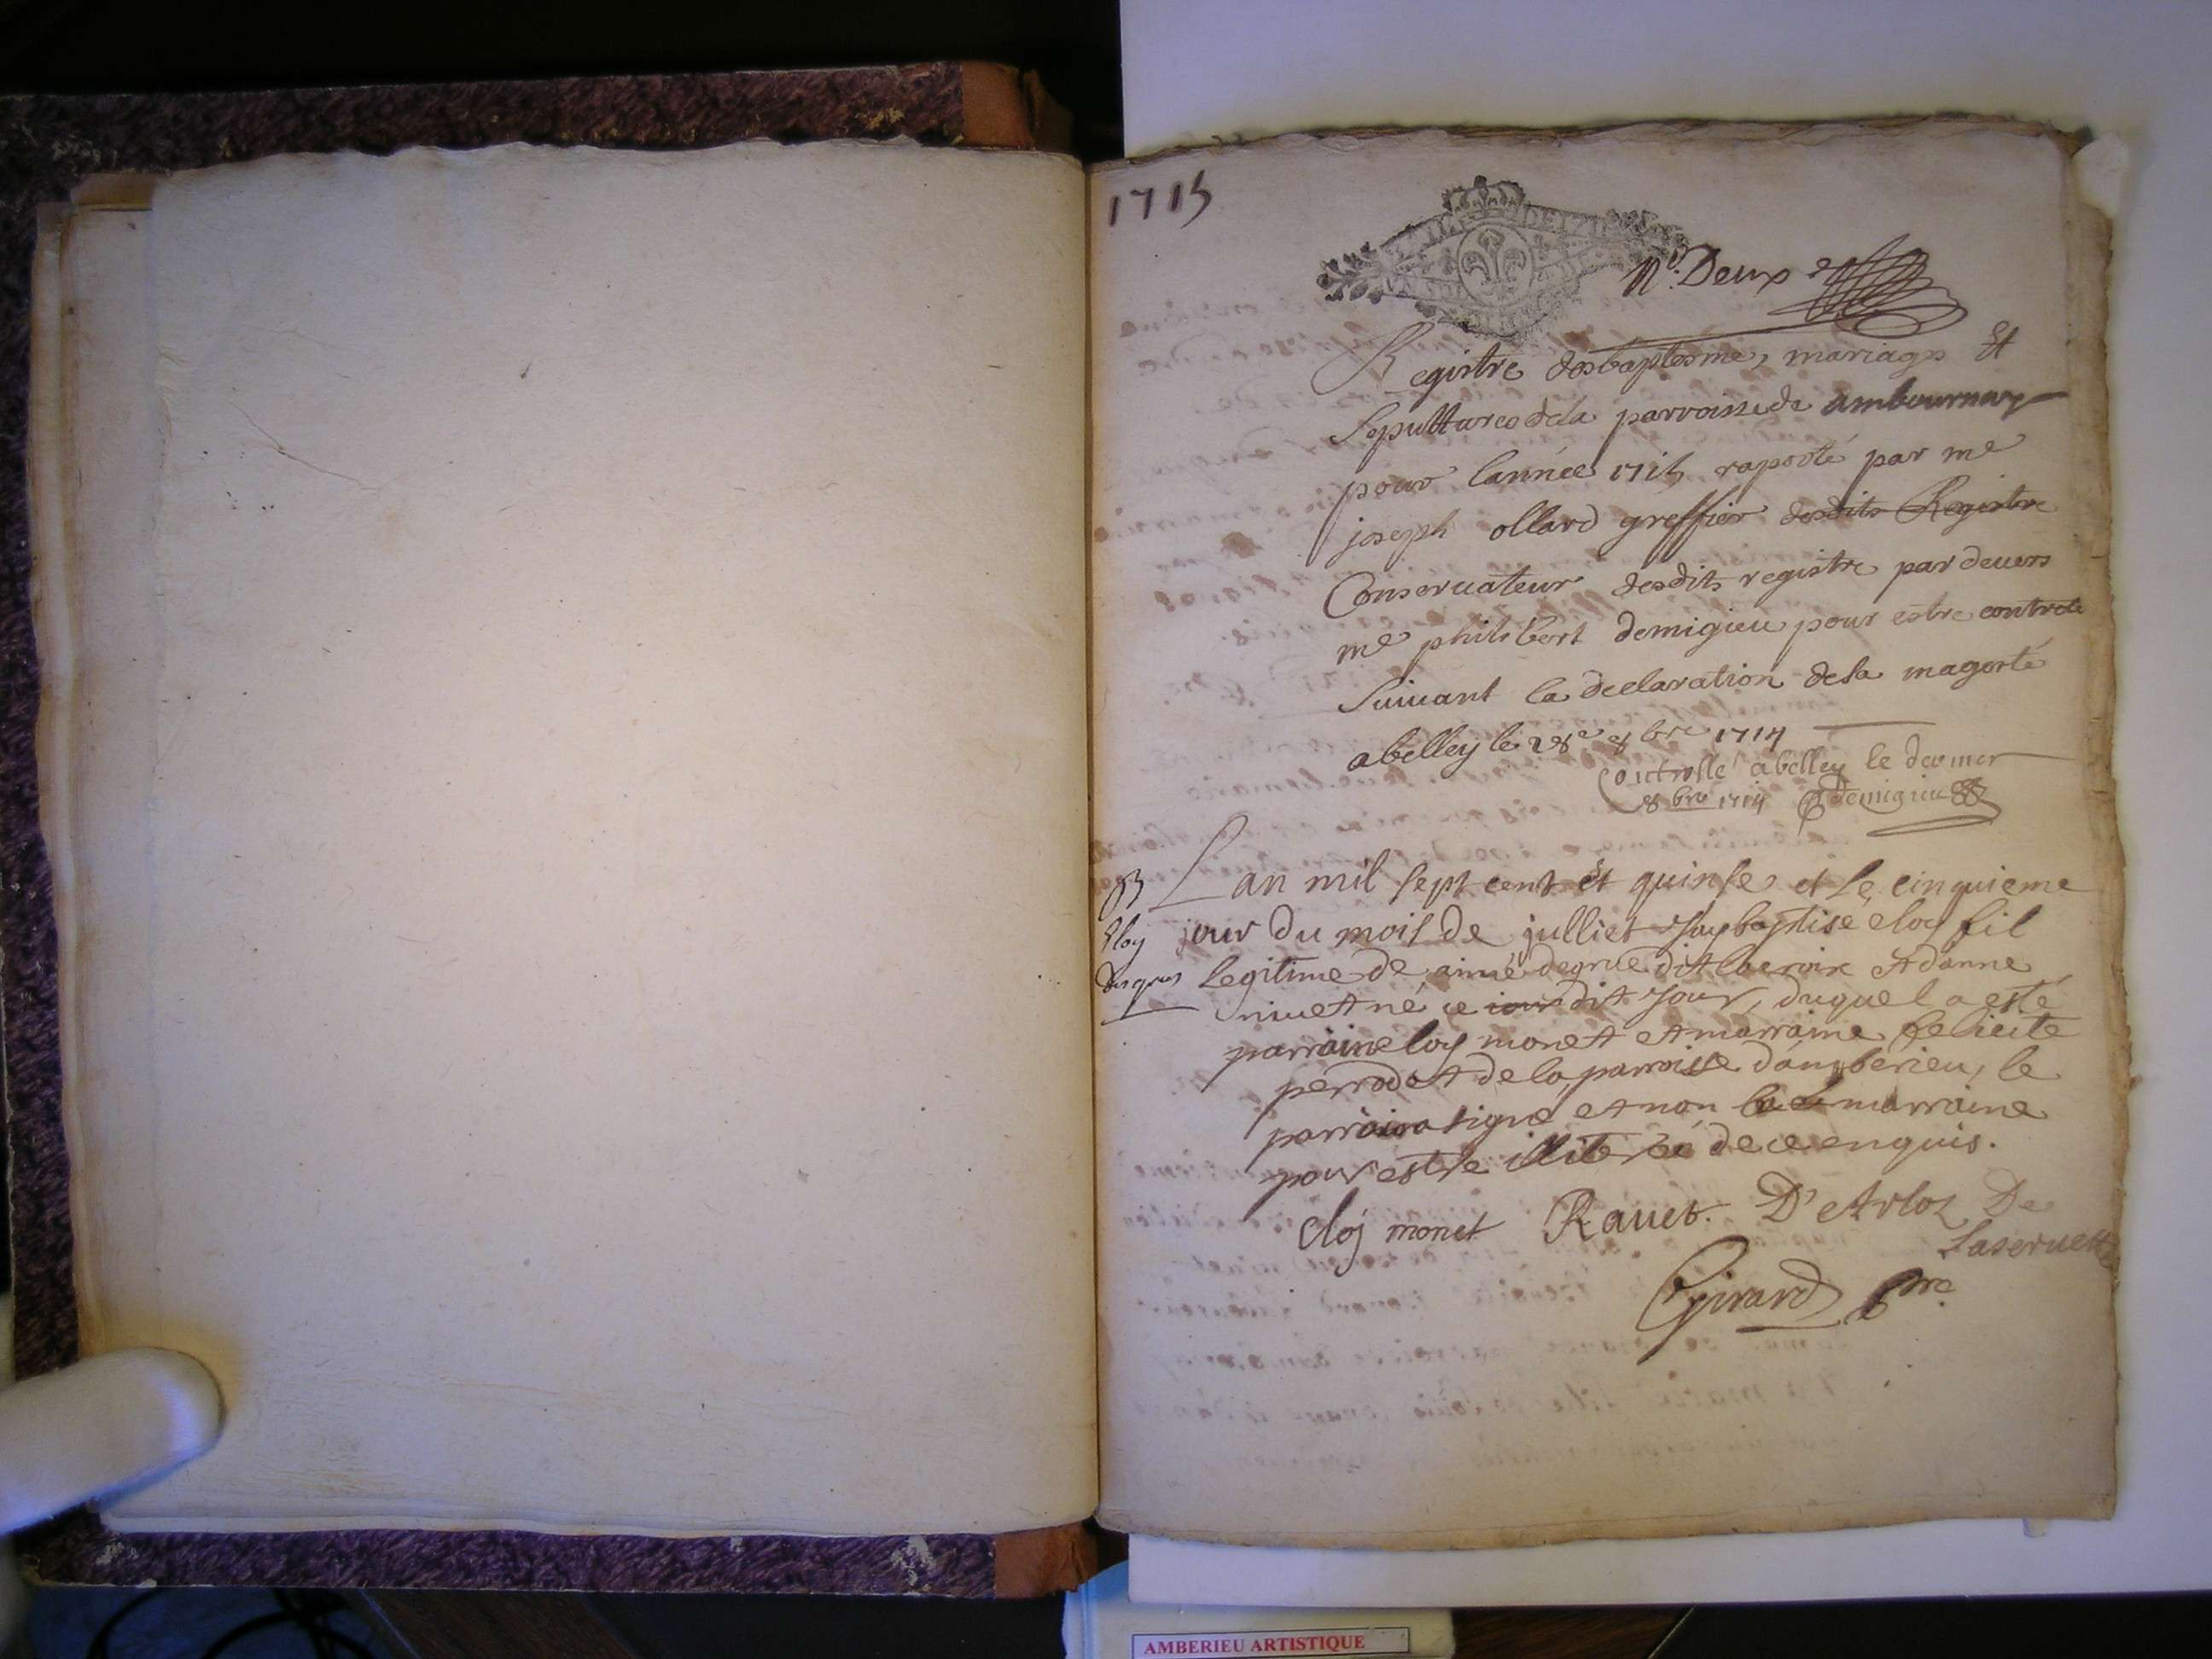 1715
N.º Deux
Registre des baptesme, mariages Et
Sepultures de la parroisse de ambournay
pour lannée 1715 raporté par me
joseph ollard greffier desdits Registre
Conseruateur desdits registre pardeuers
me philibert demigieu pour estre controlé
Suiuant la declaration de sa magesté
abelley le 28e 8bre 1714
Controllé abelley le dernier
8bre 1714 demigieu
B Lan mil sept cent et quinse et le cinquieme
Eloy jour du mois de julliet jay baptise eloy fil
legitime de aimé degrus dit lacroix et danne
niuet né ce jour dit jour, duquel a esté
parrain eloy monet et marraine felicite
perrodet de la parroisse dambérieu, le
parrain a signé et non la marraine
pour estre illiterée de ce enquis.
eloj monet Rauet. D'Arloz De
Laseruette
Girard pbre
AMBERIEU ARTISTIQUE